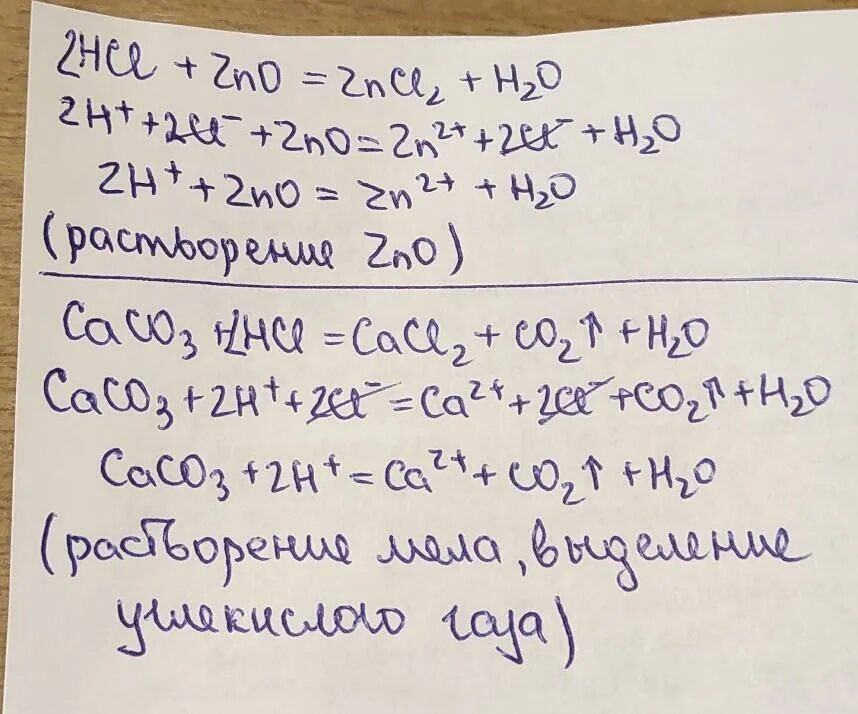 2HCl + ZnO = ZnCl₂ + H₂O
2H⁺ + 2Cl⁻ + ZnO = Zn²⁺ + 2Cl⁻ + H₂O
2H⁺ + ZnO = Zn²⁺ + H₂O
(растворение ZnO)
CaCO₃ + 2HCl = CaCl₂ + CO₂↑ + H₂O
CaCO₃ + 2H⁺ + 2Cl⁻ = Ca²⁺ + 2Cl⁻ + CO₂↑ + H₂O
CaCO₃ + 2H⁺ = Ca²⁺ + CO₂↑ + H₂O
(растворение мела, выделение
углекислого газа)